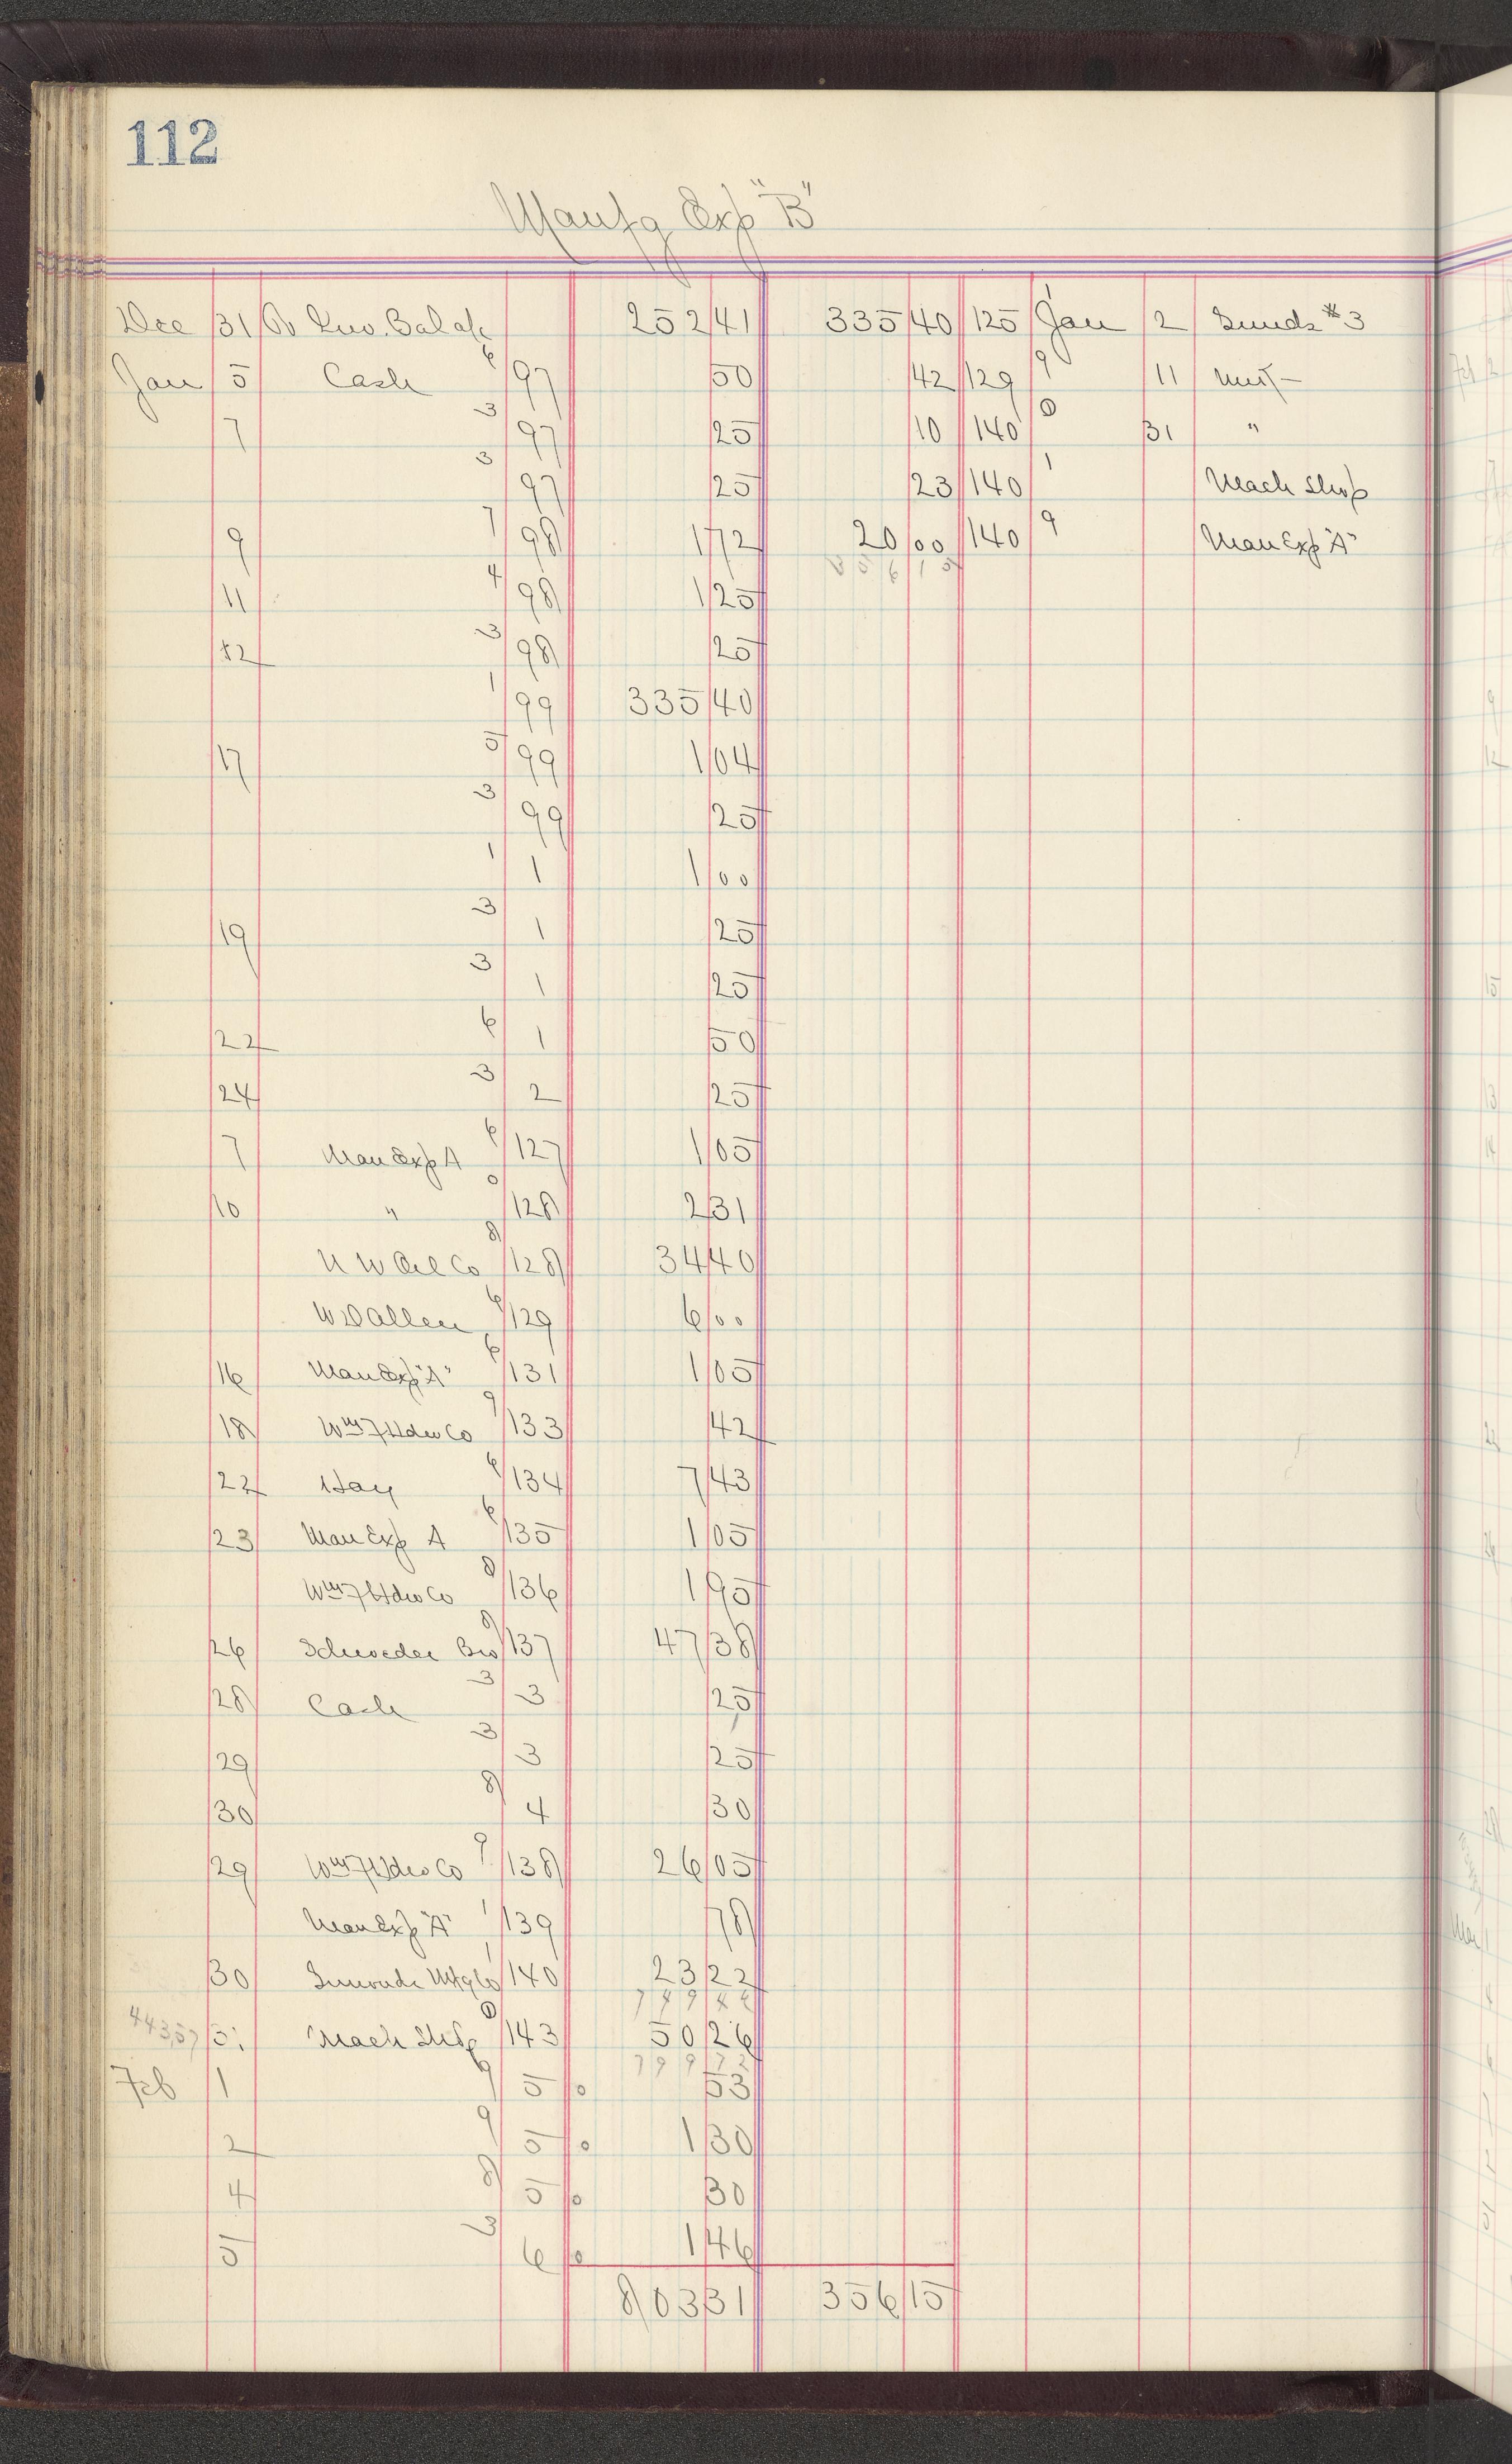 112
Manfg Exp "B"
Dec 31 Inv. Bal 252 41 335 40 125 1 Jan 2 Sunds #3
Jan 5 Cash 6 97 50 42 129 9 11 Mdse
7 3 97 25 10 140 0 31 "
3 97 25 23 140 1 Mach Shop
9 7 98 1 72 20 00 140 9 Man Exp "A"
356 15
11 4 98 1 25
12 3 98 25
1 99 335 40
17 5 99 1 04
3 99 25
1 1 1 00
19 3 1 25
3 1 25
22 6 1 50
24 3 2 25
7 Man Exp A 6 127 1 05
10 " 0 128 2 31
N W Oil Co 8 128 34 40
W D Allen 6 129 6 00
16 Man Exp "A" 6 131 1 05
18 Wm F Hdw Co 9 133 42
22 Hay 6 134 7 43
23 Man Exp A 6 135 1 05
Wm F Hdw Co 8 136 1 95
26 Schroeder Bro 8 137 47 38
28 Cash 3 3 25
29 3 3 25
30 8 4 30
29 Wm F Hdw Co 9 138 26 05
Man Exp "A" 1 139 78
30 Mfg Co 1 140 23 22
749 46
443,57 31 Mach Shop 0 143 50 26
799 72
Feb 1 9 5 53
2 9 5 1 30
4 8 5 30
5 3 6 1 46
803 31 356 15